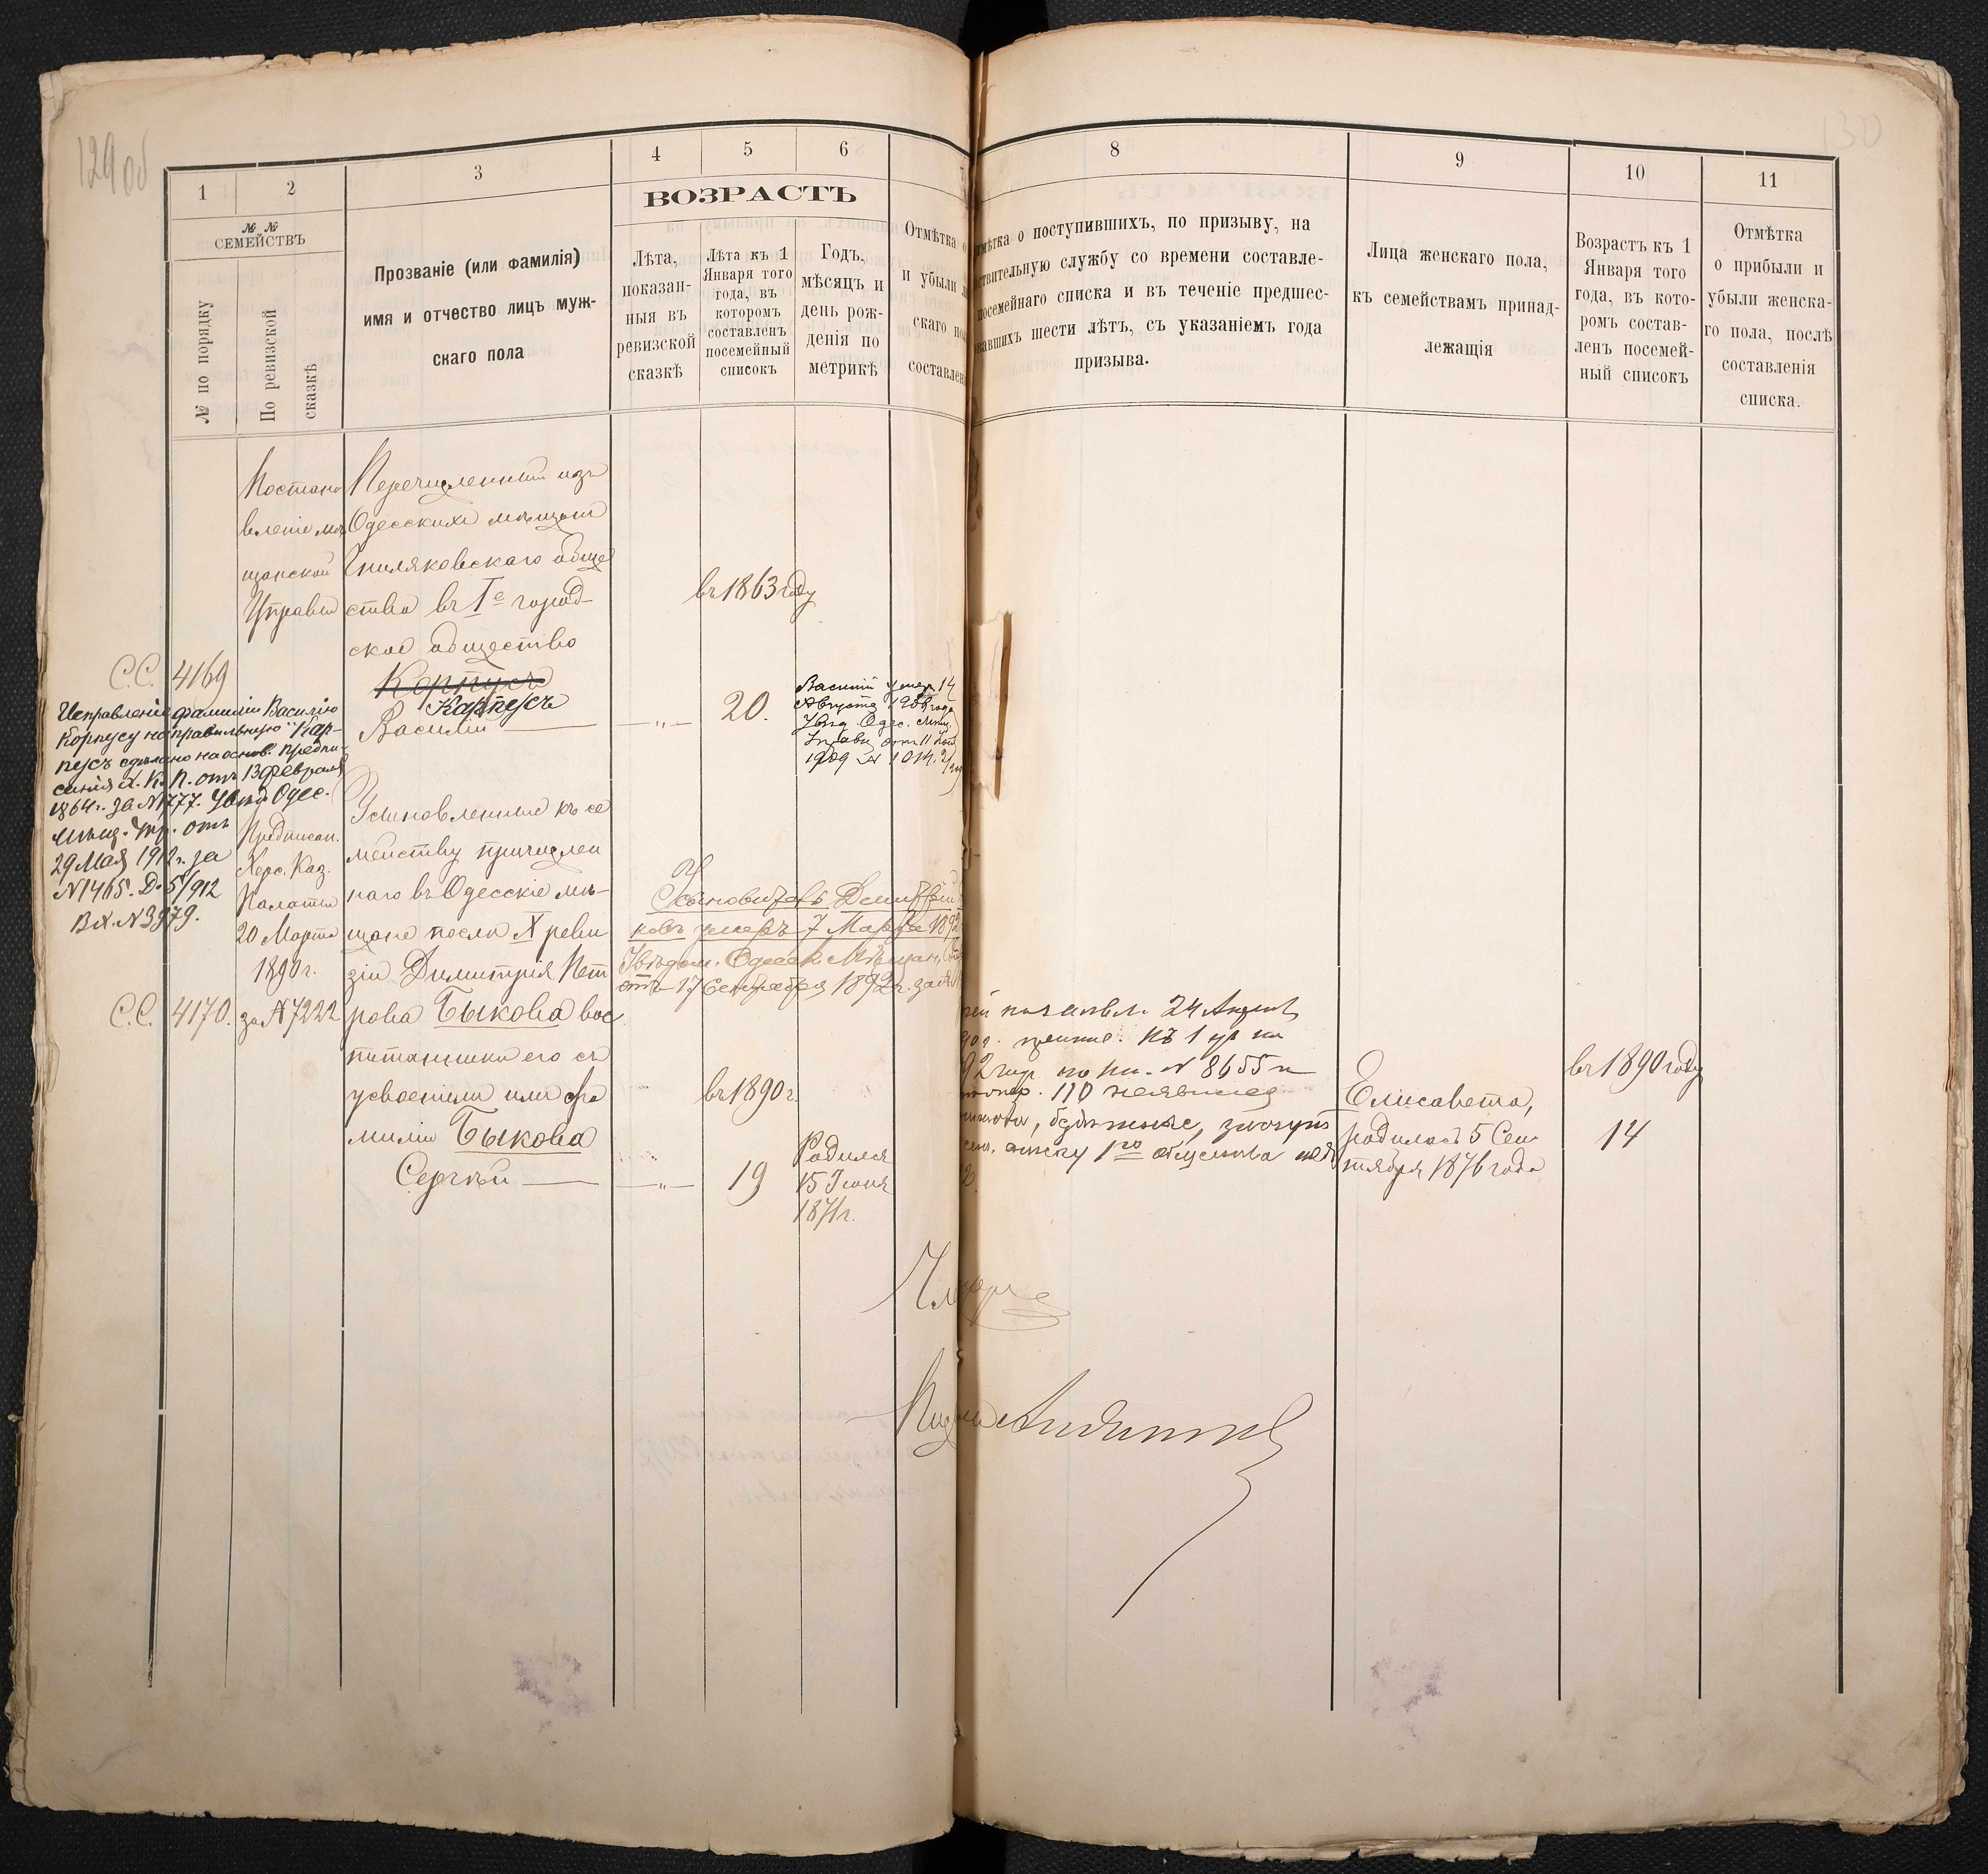 129 об
130
1
2
3
4
5
6
8
9
10
11
№ №
СЕМЕЙСТВЪ
№ по порядку
По ревизской
сказкѣ
Прозваніе (или фамилія)
имя и отчество лицъ муж-
скаго пола
ВОЗРАСТЪ
Лѣта,
показан-
ныя въ
ревизской
сказкѣ
Лѣта къ 1
Января того
года, въ
которомъ
составленъ
посемейный
списокъ
Годъ,
мѣсяцъ и
день рож-
денія по
метрикѣ
Отмѣтка о
и убыли
скаго
составлен
о поступившихъ, по призыву, на
службу со времени составле-
посемейнаго списка и въ теченіе предшес-
шести лѣтъ, съ указаніемъ года
призыва.
Лица женскаго пола,
къ семействамъ принад-
лежащія
Возрастъ къ 1
Января того
года, въ кото-
ромъ состав-
ленъ посемей-
ный списокъ
Отмѣтка
о прибыли и
убыли женска-
го пола, послѣ
составленія
списка.
Постано
вленіе мѣ
щанской
Управы
Перечисленный изъ
Одесскихъ мѣщанъ
общe
ства въ Iе город-
ское общество
въ 1863 году
С.С. 4169
Корпусъ
Карпусъ
Василій
20.
Василій умер. 14
Августа 1908 года
Увѣд. Одес. Мѣщ.
Управы отъ 11
1909 № 1014.
Исправленіе фамиліи Василію
Корпусу на правильную "Кар-
пусъ" сдѣлано на основ. предпи-
санія Х. К. П. отъ 13 февраля
1864 г. за №1777. Увѣд. Одес.
Мѣщ. Упр. отъ
29 Мая 1912 г. за
№1465. Д. 5/912
Вх. №3979.
Предписан.
Херс. Каз.
Палаты
20 Марта
1890 г.
за № 7222
С.С. 4170.
Усыновленные къ се
мейству причислен
наго въ Одесскіе мѣ-
щане послѣ X реви
зіи Димитрія Пет
рова Быкова вос
питанники его съ
усвоеніемъ имъ фа
миліи Быкова
Сергѣй
Усыновитель Димитрій
ковъ умеръ 7 Марта 1892
Увѣдом. Одесск. Мѣщан.
отъ 17 Сентября 1892 г. за №
въ 1890 г.
19
Родился
15 Іюня
1871 г.
24
къ 1
№ 8655
110
Елисавета,
родилась 5 Сен
тября 1876 года
въ 1890 году
14